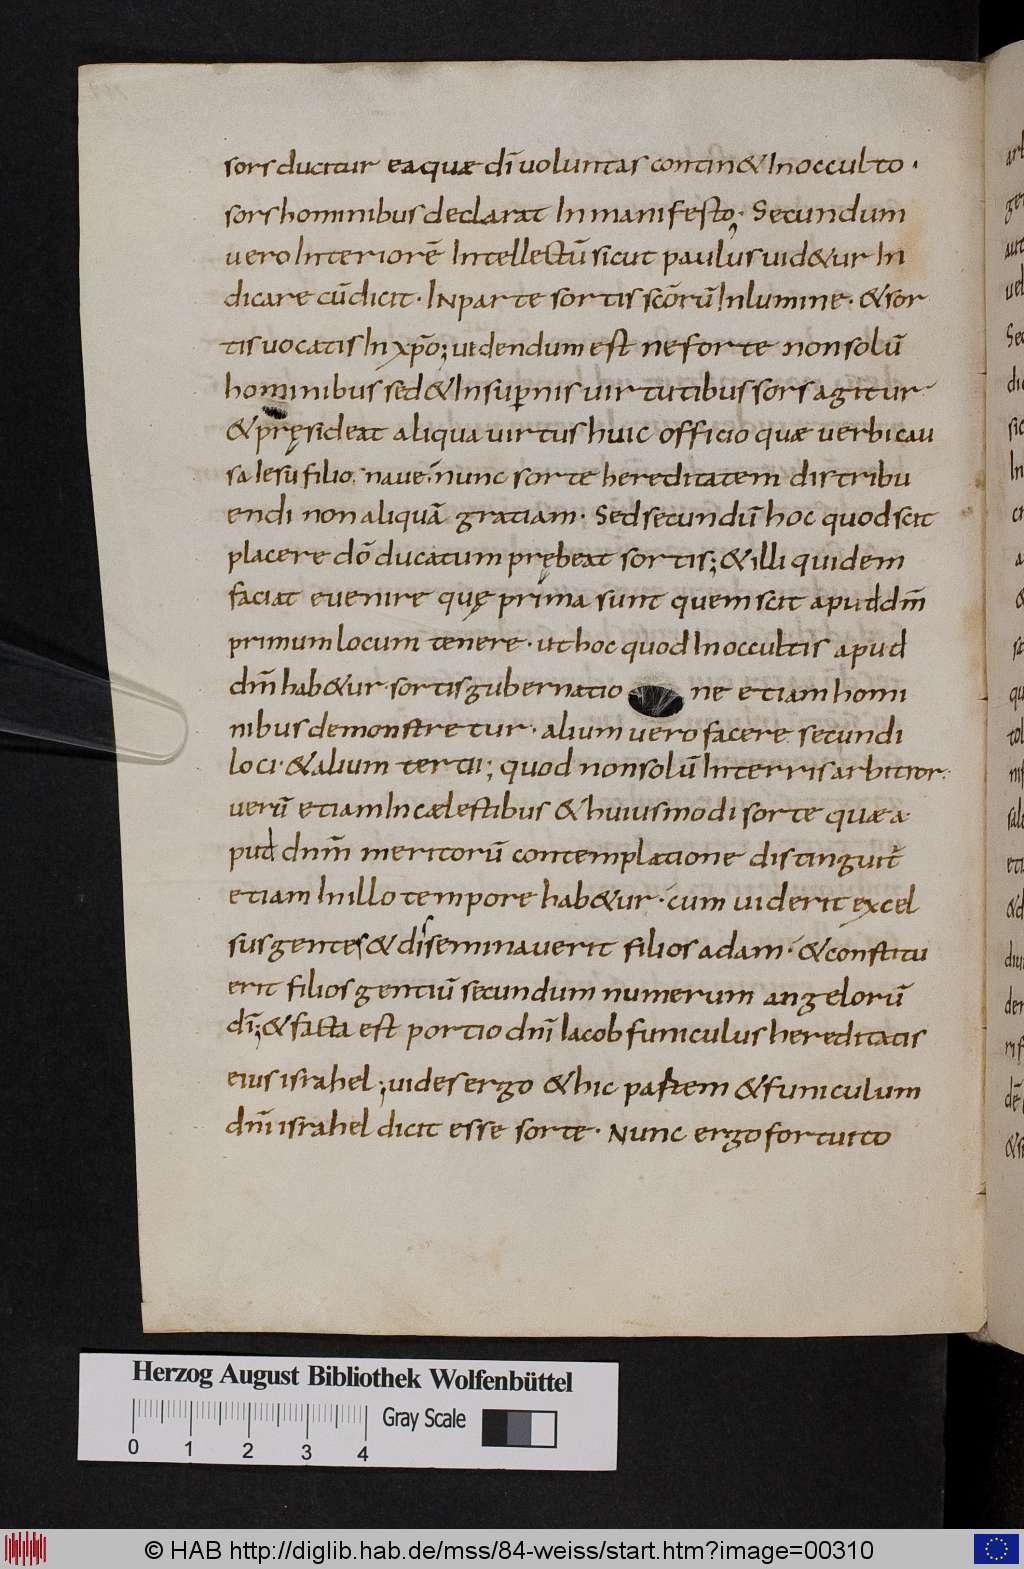 sors ducitur ea quae dī voluntas contin& In occulto ·
sors hominibus declarat In manifesto; Secundum
vero Interiorē Intellectū sicut paulus uid&ur In
dicare cū dicit · IN parte sortis scōrū In lumine · & sor
tis vocatis In xp̄o; uidendum est ne forte non solū
hominibus sed & In suꝑnis virtutibus sors agitur
& pręsideat aliqua uirtus huic officio quae verbi cau
sa Iesu filio naue · nunc sorte hereditatem distribu
endi non aliquā gratiam · Sed secundū hoc quod scit
placere dō ducatum prębeat sortis; & illi quidem
faciat evenire quę prima sunt quem scit apud dm̄
primum locum tenere · ut hoc quod In occultis apud
dm̄ hab&ur sortis gubernatio ne etiam homi
nibus demonstretur · alium vero facere secundi
loci · & alium tertii; quod non solū In terris arbitror ·
verū etiam In caelestibus & huiusmodi sorte quae a
pud dnm̄ meritorū contemplatione distinguit̄
etiam In illo tempore hab&ur · cum uiderit excel
sus gentes & diseminaverit filios adam · & constitu
erit filios gentiū secundum numerum angelorū
dī; & facta est portio dnī Iacob funiculus hereditatis
eius israhel; uides ergo & hic partem & funiculum
dnī israhel dicit esse sorte · Nunc ergo fortuito
Herzog August Bibliothek Wolfenbüttel
Gray Scale
0 1 2 3 4
© HAB http://diglib.hab.de/mss/84-weiss/start.htm?image=00310